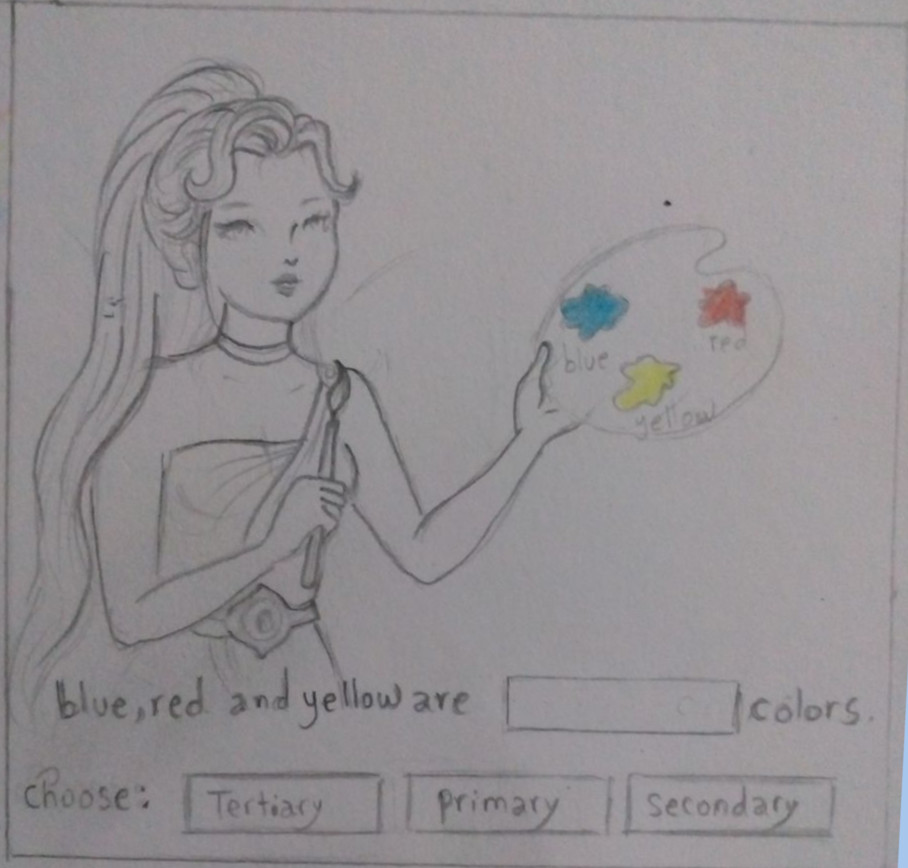 blue
red
yellow
blue, red and yellow are
colors.
choose:
Tertiary
primary
secondary